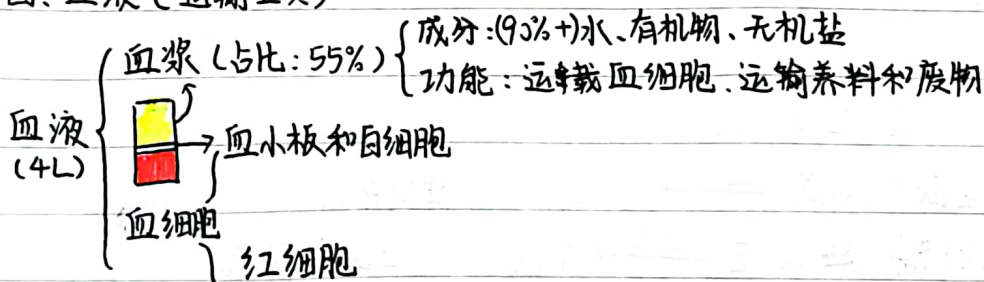 血液(运输工具)
血浆(占比:55%)
成分:(90%+)水、有机物、无机盐
功能:运载血细胞、运输养料和废物
血液
(4L)
血小板和白细胞
血细胞
红细胞